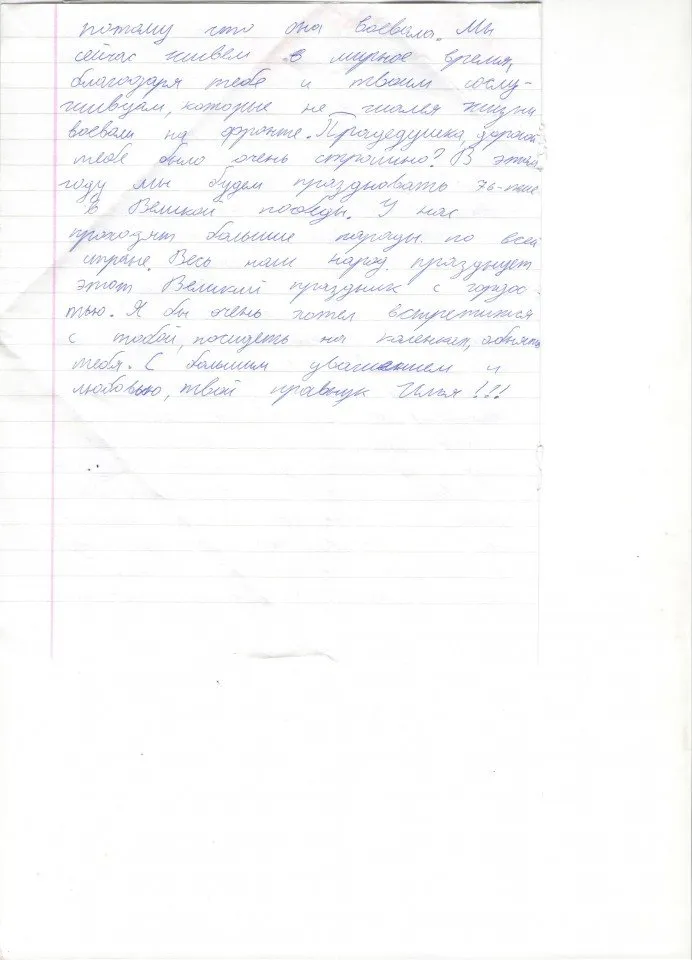 потому что она воевала. Мы
сейчас живем в мирное время,
благодаря тебе и твоим сослу-
живцам, которые не жалея жизни
воевали на фронте. Прадедушка, дорогой
тебе было очень страшно? В этом
году мы будем праздновать 76-тие
в Великой победы. У нас
проходят большие парады по всей
стране. Весь наш народ празднует
этот Великий праздник с гордос-
тью. Я бы очень хотел встретится
с тобой, посидеть на коленках, обнять
тебя. С большим уважением и
любовью, твой правнук Илья!!!